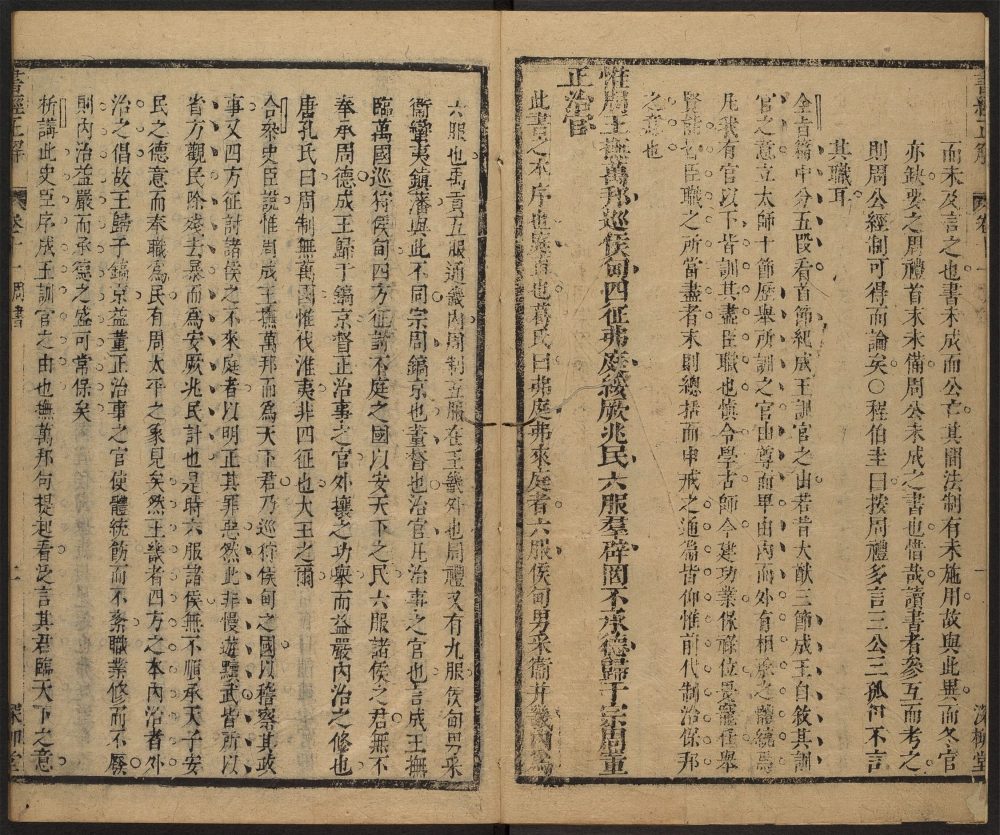 而未及言之也書未成而公亡其間法制有未施用故與此異而冬官
亦缺要之周禮首末未備周公未成之書也惜哉讀書者參互而考之
則周公經制可得而論矣○程伯圭曰按周禮多言三公三孤但不言
其職耳
全旨篇中分五段看首節紀成王訓官之由若昔大猷三節成王自敘其訓
官之意立太師十節歷舉所訓之官由尊而卑由內而外有相承之體統焉
凡我有官以下皆訓其盡臣職也慎令學古師令建功業保祿位畏寵任舉
賢皆臣職之所當盡者末則總括而申戒之通篇皆仰惟前代制治保邦
之意也
惟周王撫萬邦巡侯甸四征弗庭綏厥兆民六服羣辟罔不承德歸于宗周董
正治官
此書之本序也庭直也葛氏曰弗庭弗來庭者六服侯甸男采衞并畿內為
六服也禹貢五服通畿內周制五服在王畿外也周禮又有九服侯甸男采
衞蠻夷鎮藩與此不同宗周鎬京也董督也治官凡治事之官也言成王撫
臨萬國巡狩侯甸四方征討不庭之國以安天下之民六服諸侯之君無不
奉承周德成王歸于鎬京督正治事之官外攘之功舉而益嚴內治之修也
唐孔氏曰周制無萬國惟伐淮夷非四征也大王之爾
合參史臣說惟周成王撫萬邦而為天下君乃巡狩侯甸之國以稽察其政
事又四方征討諸侯之不來庭者以明正其罪惡然此非慢遊黷武皆所以
省方觀民除殘去暴而為安厥兆民計也是時六服諸侯無不順承天子安
民之德意而奉職為民有周太平之象見矣然王畿者四方之本內治者外
治之倡故王歸于鎬京益董正治事之官使體統飭而不紊職業修而不廢
則內治益嚴而承德之盛可常保矣
析講此史臣序成王訓官之由也撫萬邦句提起看泛言其君臨天下之意
書經正解
卷十一 周書
二
深柳堂